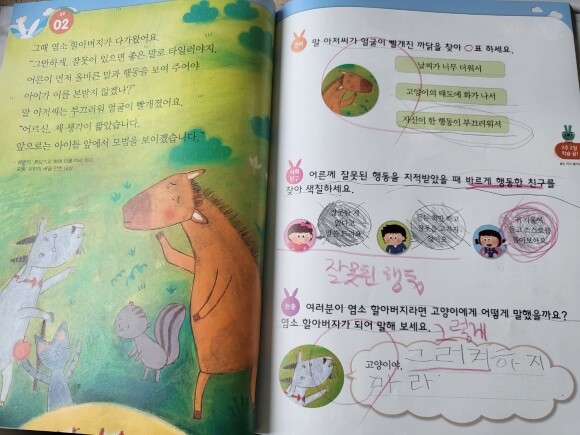 02
그때 염소 할아버지가 다가왔어요.
"그만하게. 잘못이 있으면 좋은 말로 타일러야지.
어른이 먼저 올바른 말과 행동을 보여 주어야
아이가 이를 본받지 않겠나?"
말 아저씨는 부끄러워 얼굴이 빨개졌어요.
"어르신, 제 생각이 짧았습니다.
앞으로는 아이들 앞에서 모범을 보이겠습니다."
말 아저씨가 얼굴이 빨개진 까닭을 찾아 ○표 하세요.
날씨가 너무 더워서
고양이의 태도에 화가 나서
자신이 한 행동이 부끄러워서
어른께 잘못된 행동을 지적받았을 때 바르게 행동한 친구를
찾아 색칠하세요.
잘못된 행동
여러분이 염소 할아버지라면 고양이에게 어떻게 말했을까요?
염소 할아버지가 되어 말해 보세요.
그렇게
고양이야, 그러켜하지
마라